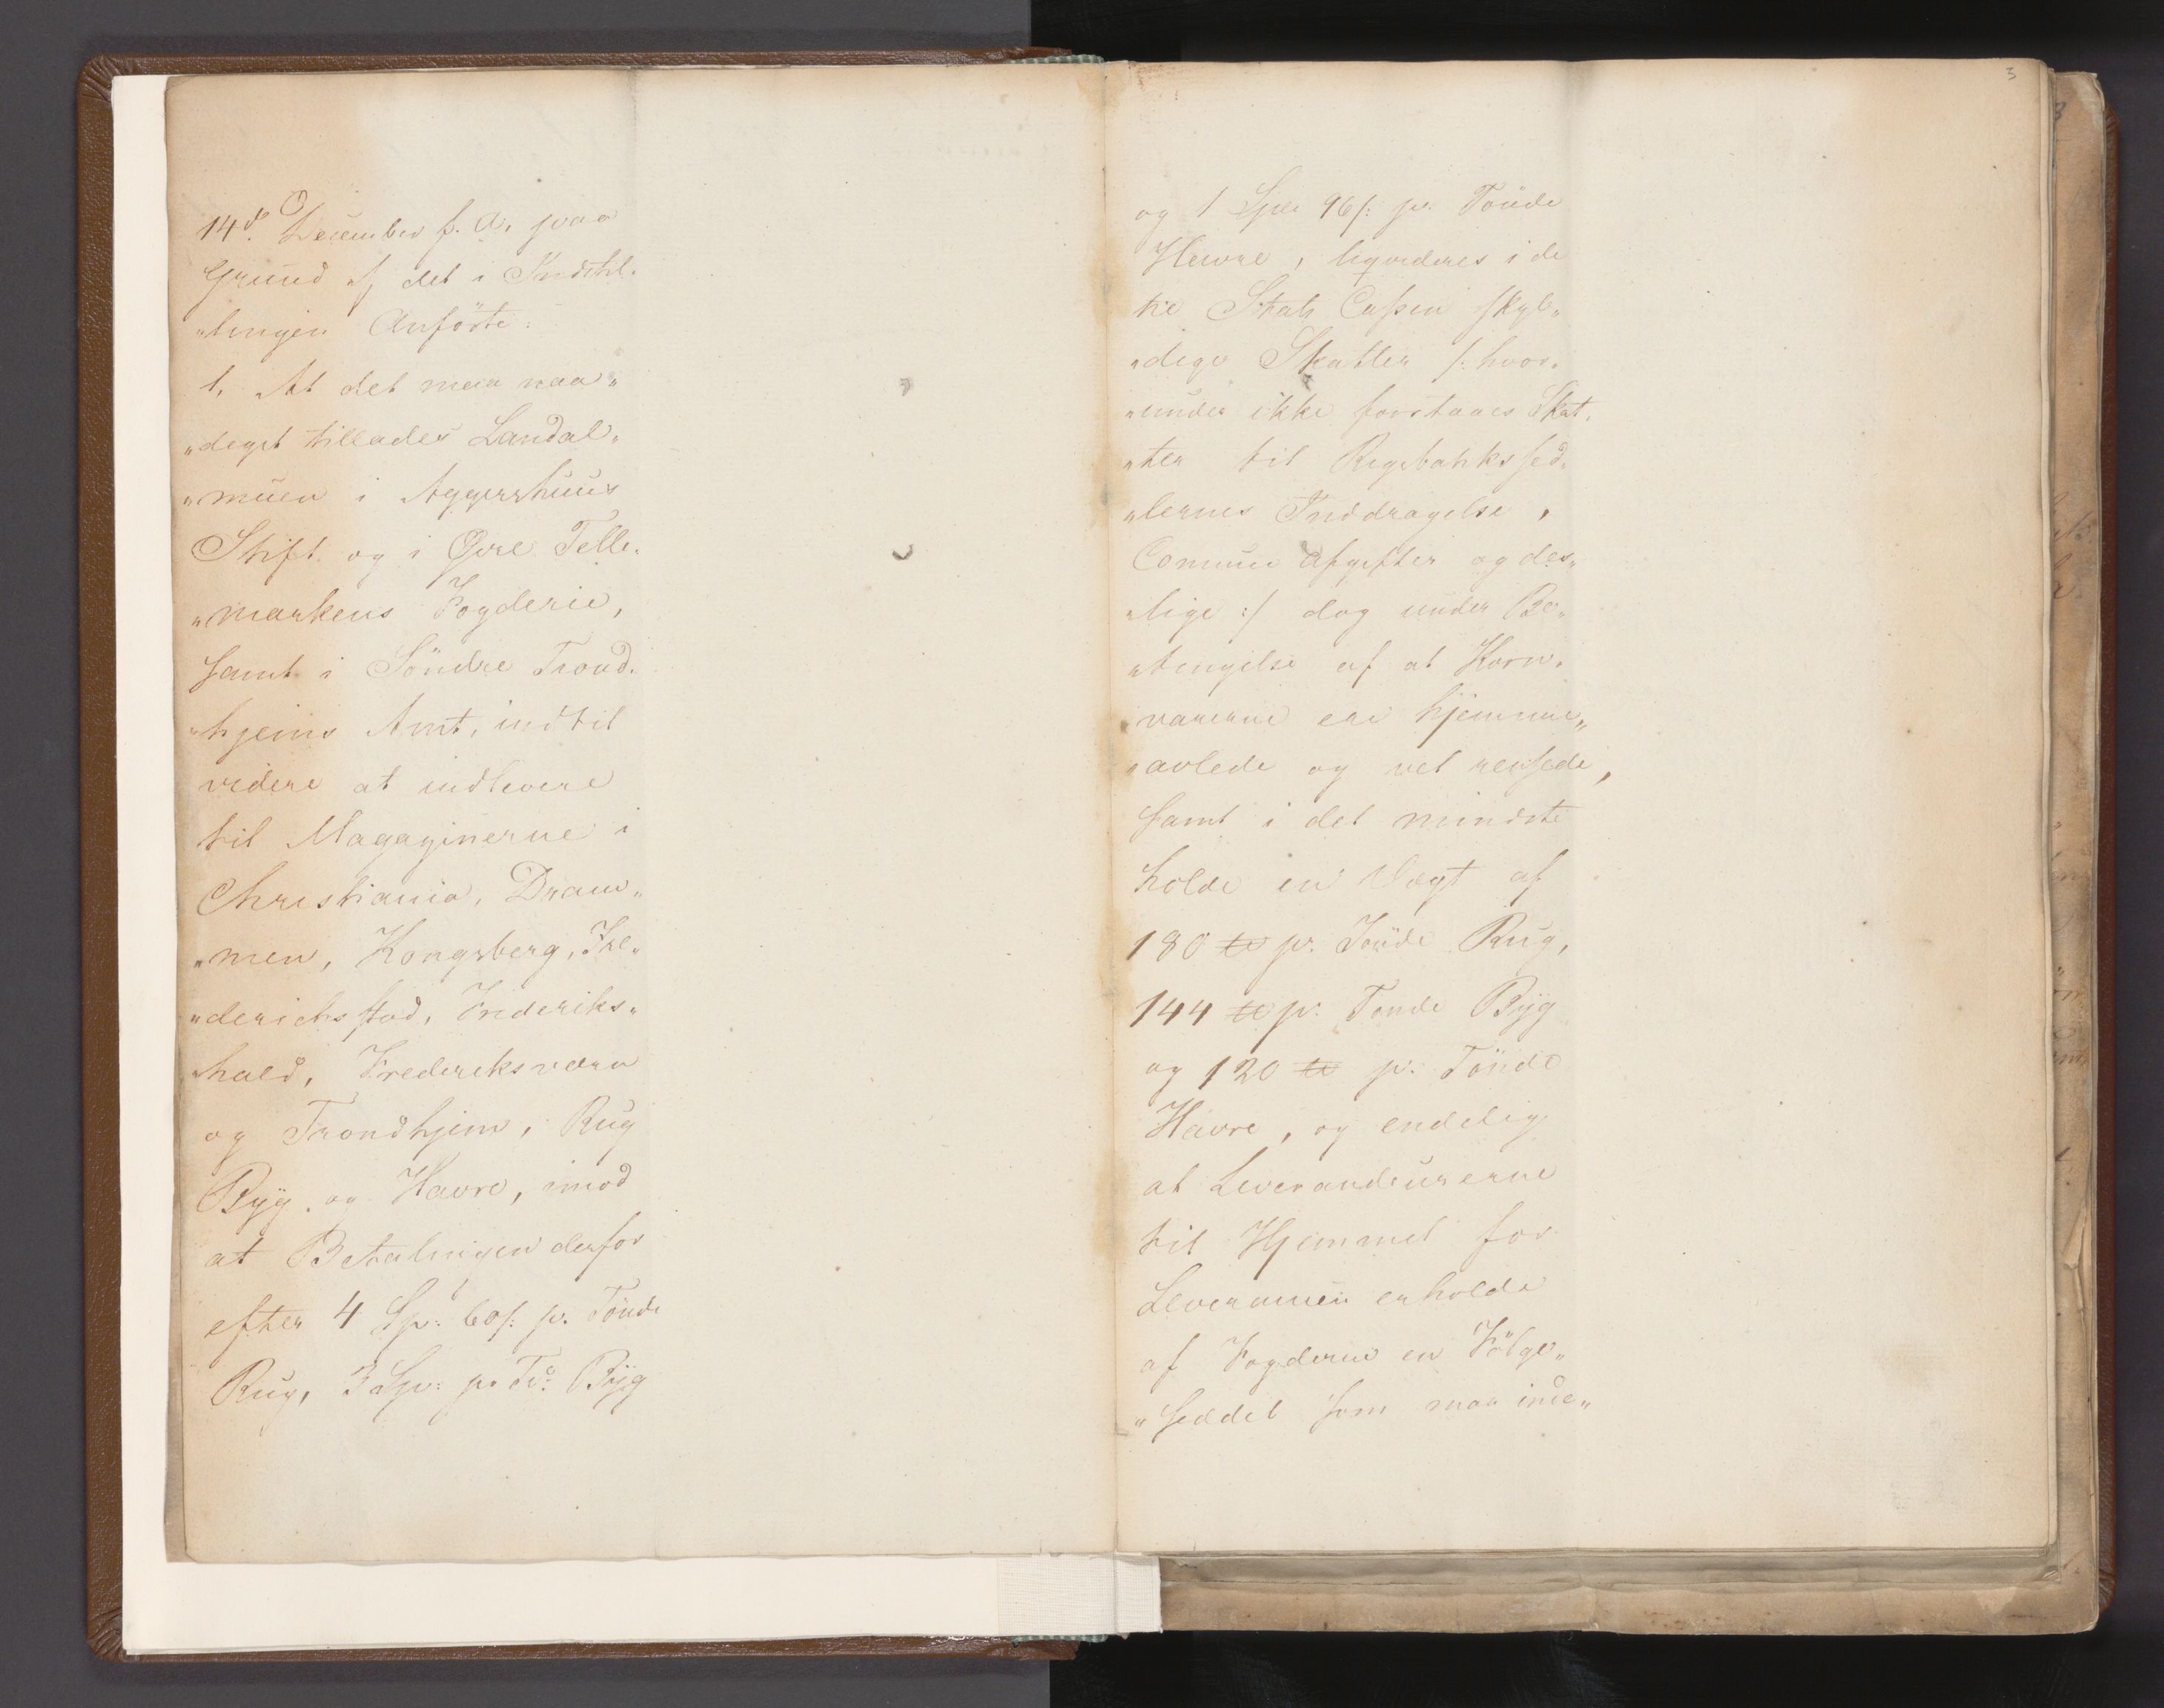 14de December f. A. paa
Grund af det i Indstil„
„lingen Anförte:
1, At det maa naa„
„digst tillades Landal„
„muen i Aggershuus
Stift og i Øvre Telle„
„markens Fogderie,
samt i Söndre Trond„
„hjems Amt, indtil
videre at indlevere
til Magazinerne i
Christiania, Dram„
„men, Kongsberg, Fre„
„derichsstad, Frideriks„
hald, Frederiksværn
og Trondhjem, Rug
Byg og Havre, imod
at Betalningen derfor
efter 4 Sp: 60 s: pr. Tönde
Rug, 3 Sp: pr Tde: Byg
3
og 1 Spd 96 s: pr. Tönde
Havre, liqvideres i de
til Stats Cassen skyl„
„dige Skatter /: hvor„
„under ikke forstaaes Skat„
„ter til Rigsbanksed„
„lernes Inddragelse,
Comune Afgifter og des„
„lige :/ dog under Be„
„tingelse af at Korn„
varerne ere hjemme„
„avlede og vel rensede,
samt i det mindste
holde en Vægt af
180 ℔ pr. Tönde Rug,
144 ℔ pr. Tönde Byg
og 120 ℔ pr. Tönde
Havre, og endelig
at Leverandeurerne
til Hjemmel for
Leverancen erholde
af Fogderne en Fölge„
„seddel som maa inde„